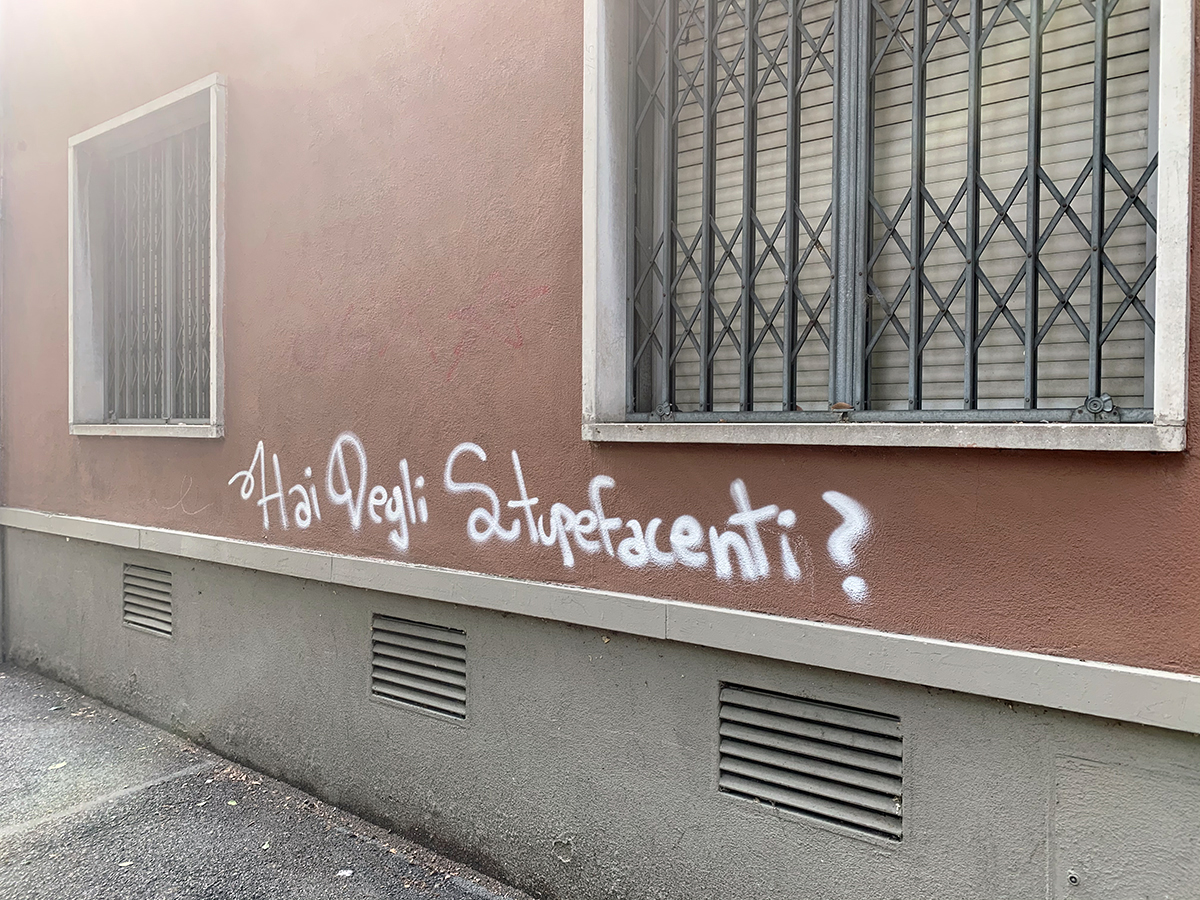 Hai Degli Stupefacenti?